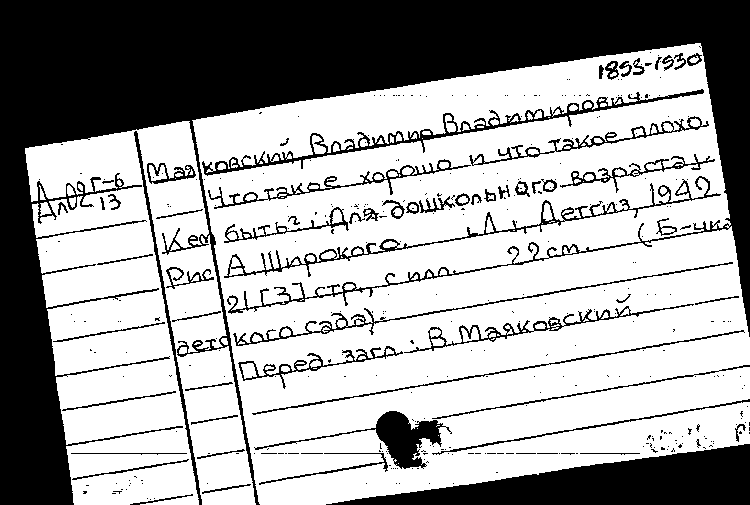 1893-1930
Маяковский, Владимир Владимирович.
Что такое хорошо и что такое плохо.
Кем быть? : Для дошкольного возраста /
Рис А. Широкого. Л : Детгиз, 1949
21, [3] стр., с илл. 22 см. (Б-чка
детского сада).
Перед. загл. : В. Маяковский.
13